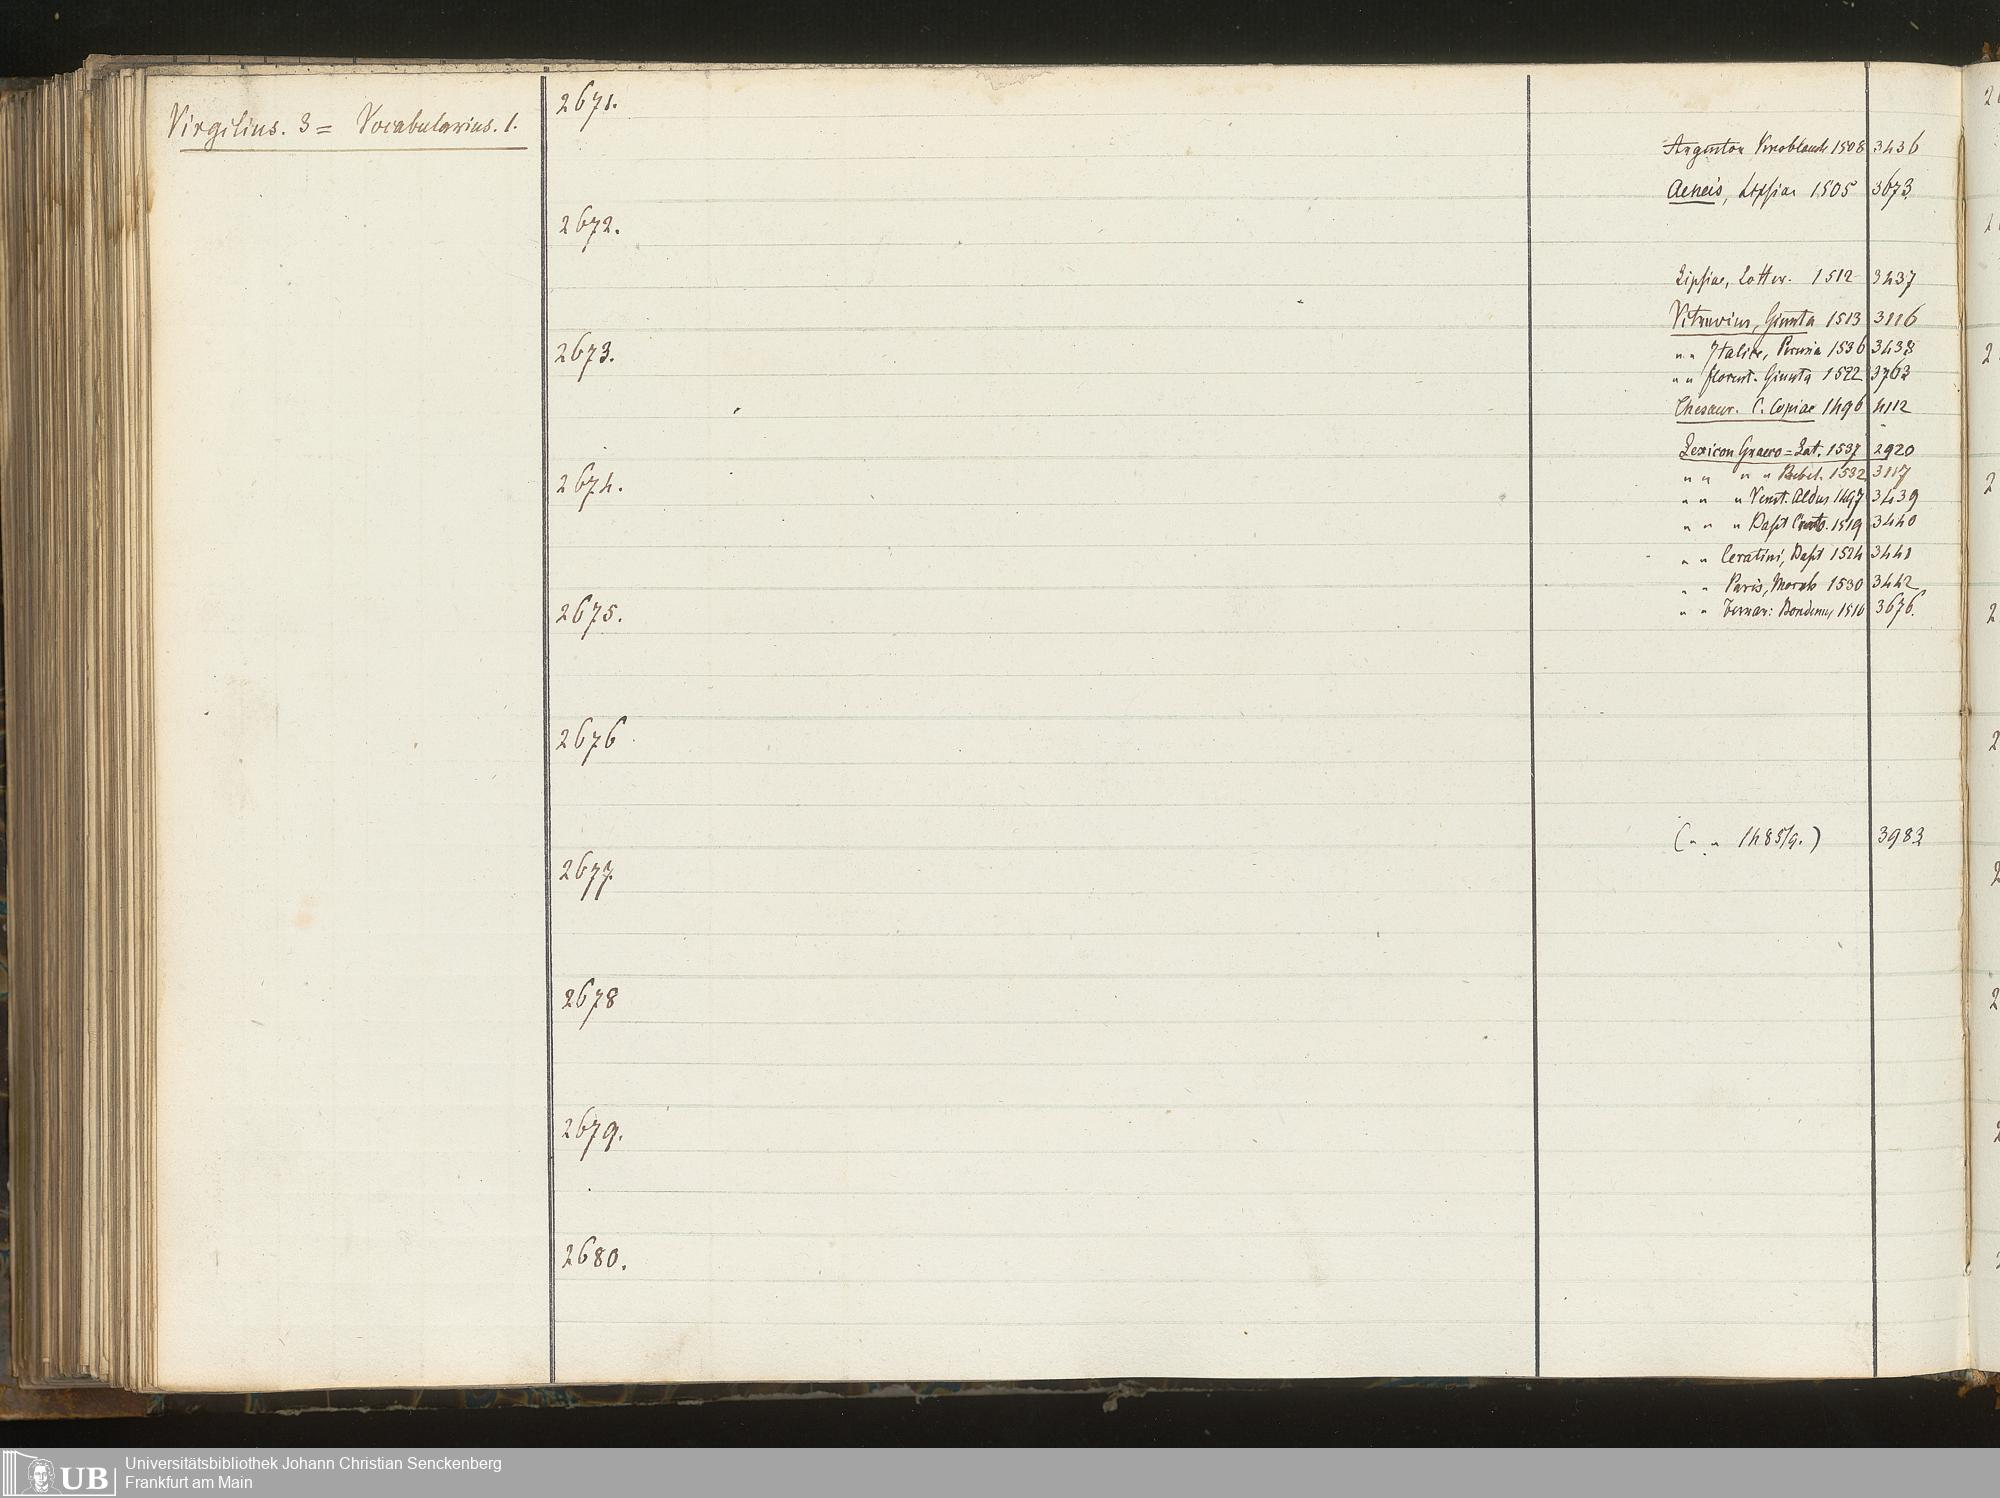 Virgilius. 3 = Vocabularius. 1.
2671.
Argentor Knoblauch 1508 3436
Aeneis, Lipsiae 1505 3673
2672.
Lipsiae, Lotter. 1512 3437
Vitruvius, Giunta 1513 3116
2673.
" " Italice, Perusia 1536 3438
" " florent. Giunta 1522 3763
Thesaur. C. Copiae 1496 4112
Lexicon Graeco = Lat. 1537 2920
2674.
" " " " Bebel. 1532 3117
" " " Venet. Aldus 1497 3439
" " " Basil 1519 3440
" " Ceratini, Basil 1524 3441
" " Paris, 1530 3442
2675.
" " 1510 3676.
2676
( " " 1485/9. ) 3983
2677.
2678
2679.
2680.
UB
Universitätsbibliothek Johann Christian Senckenberg
Frankfurt am Main